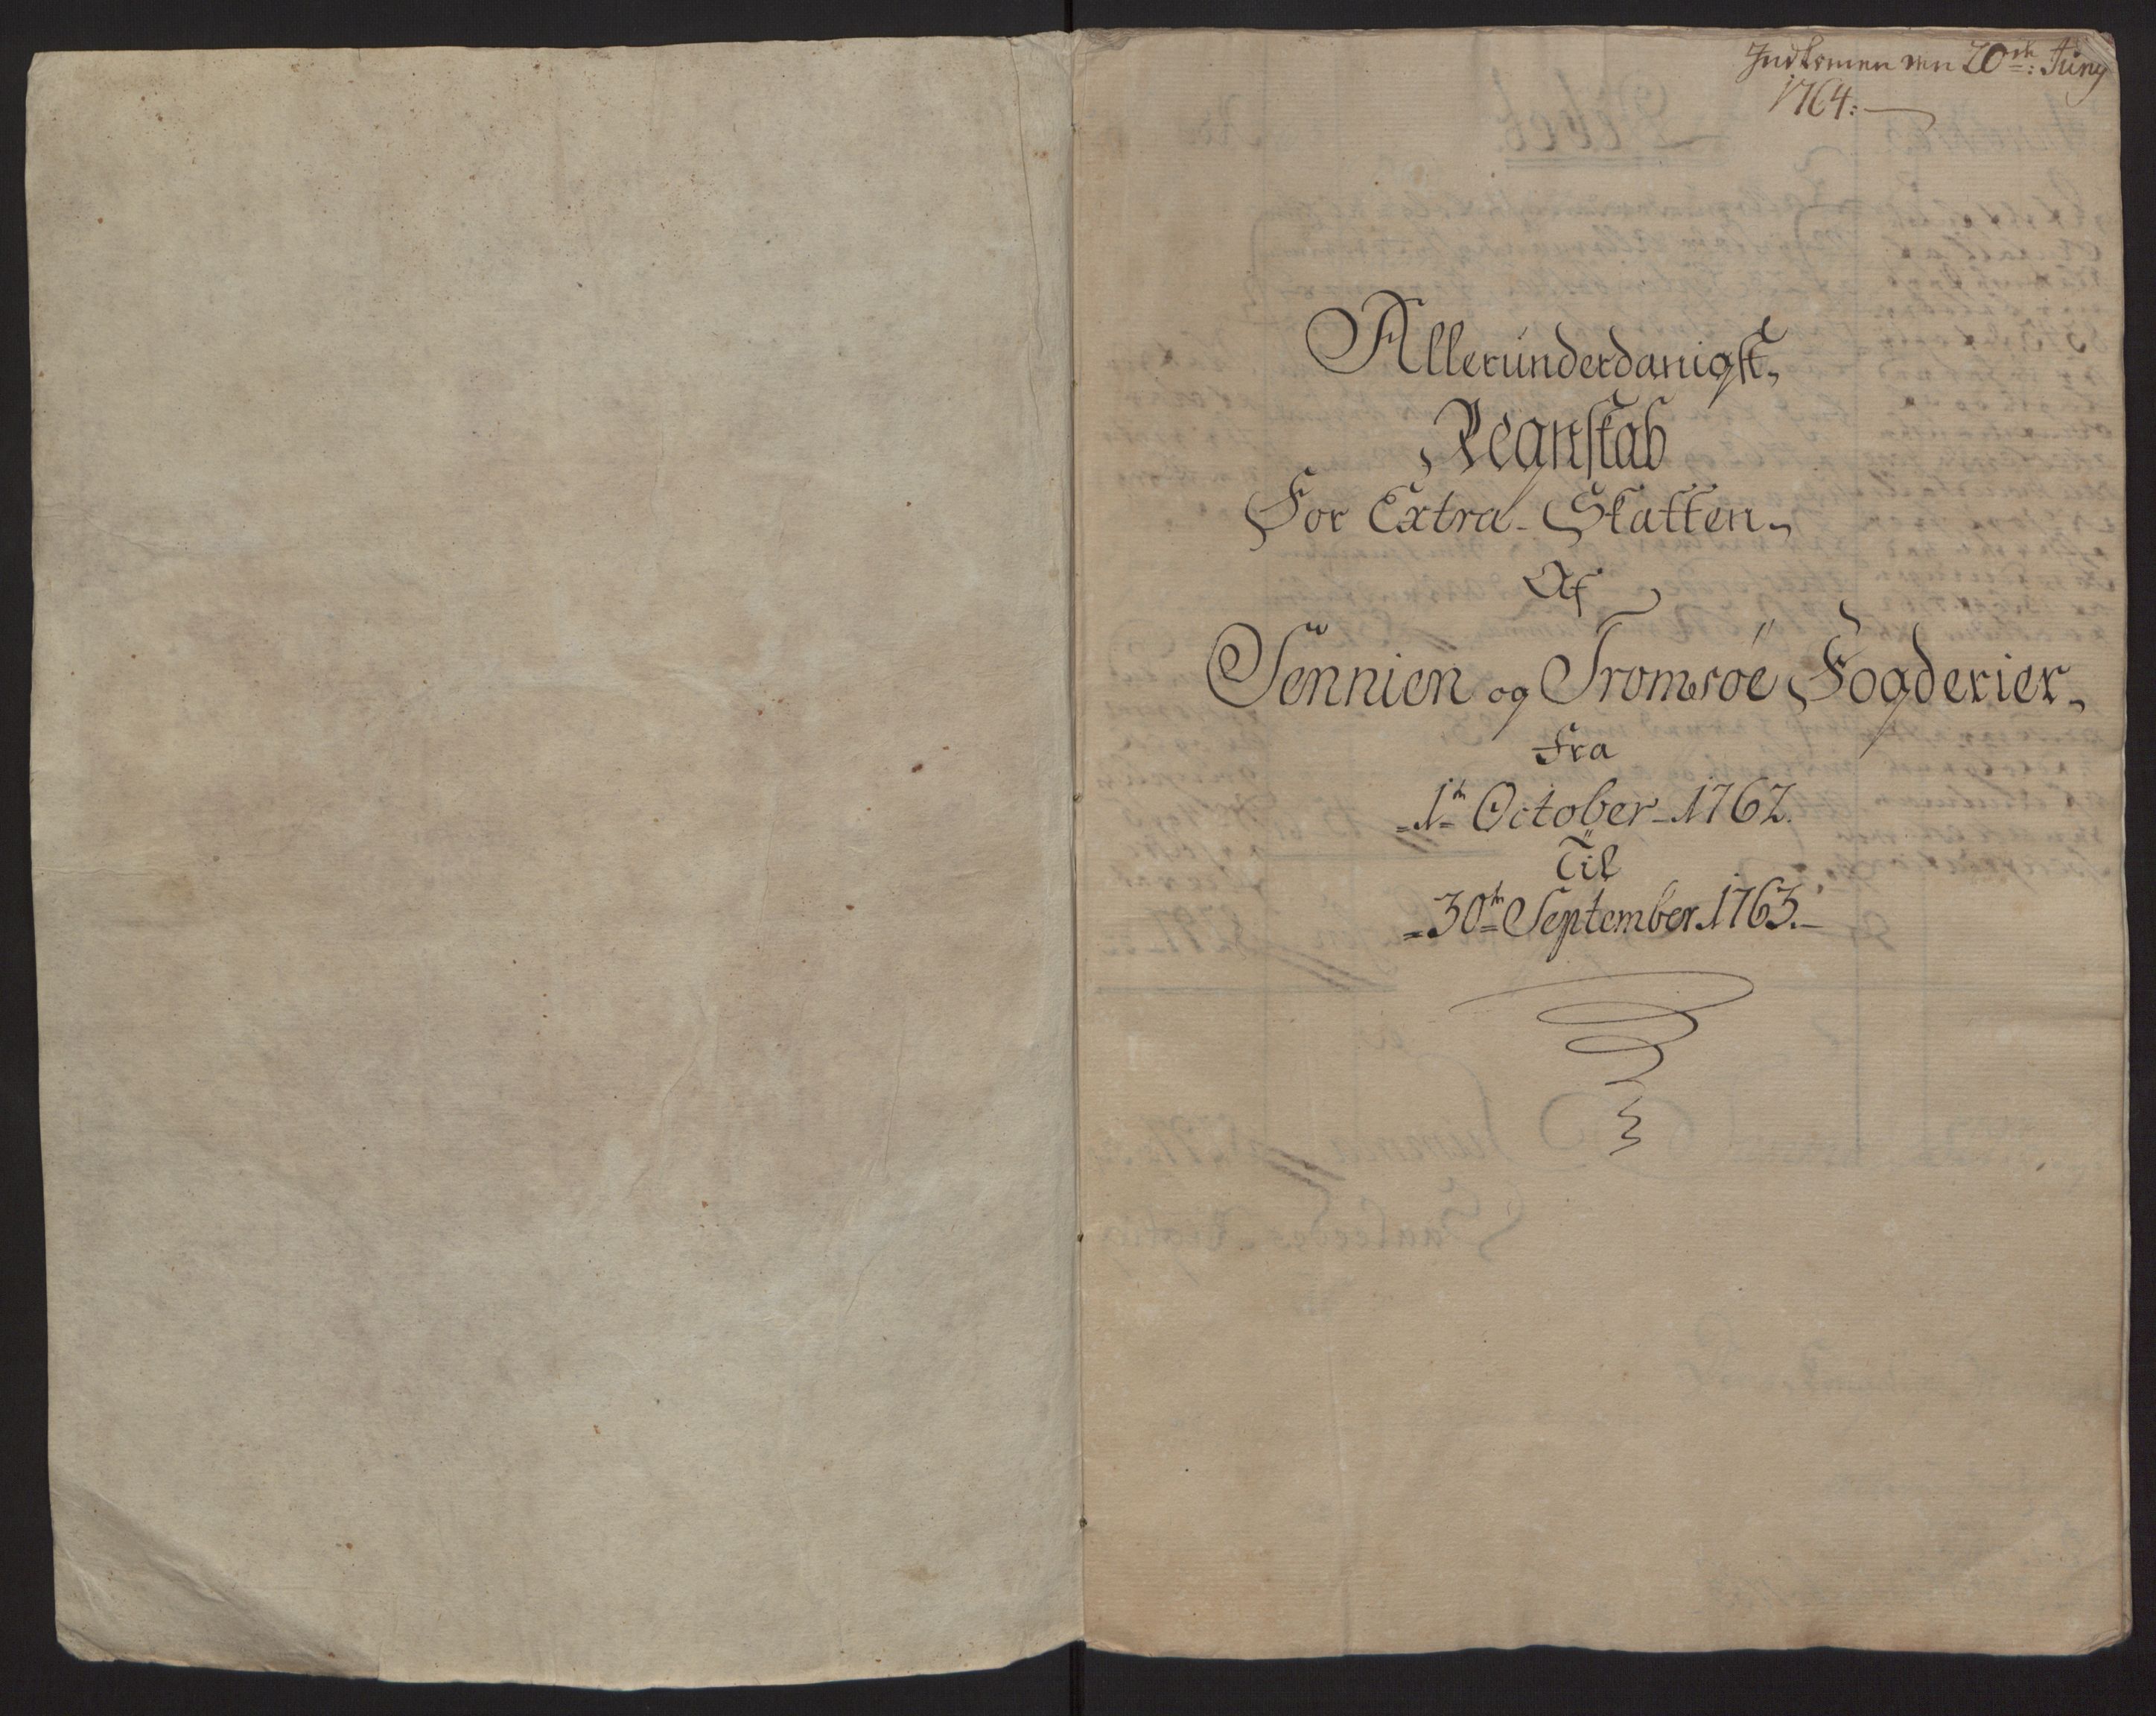 Indkommen den 20de: Juny
1764:
Allerunderdanigst
Regnskab
For Extra-Skatten
Af
Sennien og Tromsöe Fogderier
Fra
1te October 1762.
Til
30te September 1763.